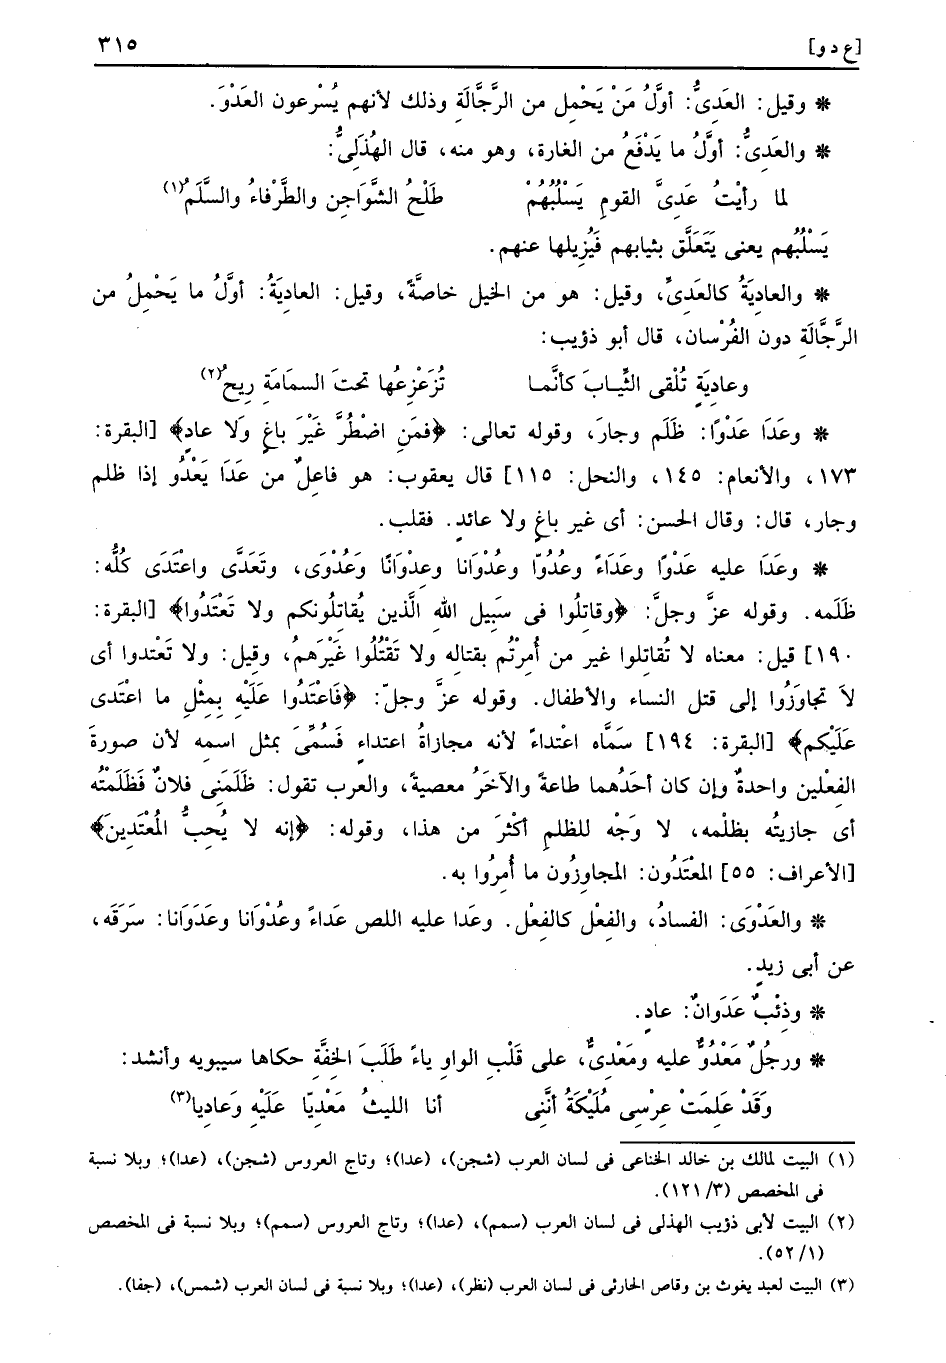 [ع د و] ٣١٥
* وقيل: العَدِىُّ: أوَّلُ مَنْ يَحْمِل من الرَّجَّالَةِ وذلك لأنهم يُسْرعون العَدْوَ.
* والعَدِىُّ: أوَّلُ ما يَدْفَعُ من الغارة، وهو منه، قال الهُذَلىُّ:
لما رأيْتُ عَدِىَّ القومِ يَسْلُبُهُمْ طَلْحُ الشَّوَاجِنِ والطَّرْفاءُ والسَّلَمُ(١)
يَسْلُبُهم يعنى يَتَعَلَّق بثيابهم فَيُزيلها عنهم.
* والعاديَةُ كالعَدِىِّ، وقيل: هو من الخيل خاصَّةً، وقيل: العاديَةُ: أوَّلُ ما يَحْمِلُ من
الرَّجَّالَةِ دون الفُرْسان، قال أبو ذؤيب:
وعاديَةٍ تُلْقى الثِّيابَ كأنَّما تُزَعْزِعُها تحتَ السمَامَةِ ريحُ(٢)
* وعَدَا عَدْوًا: ظَلَم وجارَ، وقوله تعالى: ﴿فمَنِ اضْطُرَّ غَيْرَ باغٍ وَلا عادٍ﴾ [البقرة:
١٧٣، والأنعام: ١٤٥، والنحل: ١١٥] قال يعقوب: هو فاعلٌ من عَدَا يَعْدُو إذا ظلم
وجار، قال: وقال الحسن: أى غير باغٍ ولا عائدٍ. فقلب.
* وعَدَا عليه عَدْوًا وعَدَاءً وعُدُوّا وعُدْوَانا وعِدْوَانًا وعُدْوَى، وتَعَدَّى واعْتَدَى كُلُّه:
ظَلَمه. وقوله عزَّ وجلَّ: ﴿وقاتِلُوا فى سَبِيلِ الله الَّذين يُقاتِلُونكم ولا تَعْتَدُوا﴾ [البقرة:
١٩٠] قيل: معناه لا تُقاتلوا غير من أُمِرْتُم بقتاله ولا تَقْتُلُوا غَيْرَهمُ، وقيل: ولا تَعْتدوا أى
لاَ تجاوَزُوا إلى قتل النساء والأطفال. وقوله عزَّ وجلّ: ﴿فَاعْتَدُوا عَلَيْهِ بِمِثْلِ ما اعْتَدى
عَلَيْكم﴾ [البقرة: ١٩٤] سَمَّاه اعْتداءً لأنه مجازاةُ اعتداءٍ فَسُمِّىَ بمثل اسمه لأن صورةَ
الفِعْلين واحدةٌ وإن كان أحدُهما طاعةً والآخَرُ معصيةً، والعرب تقول: ظَلَمَنى فلانٌ فَظَلَمْتُه
أى جازيتُه بظلْمه، لا وَجْه للظلمِ أكْثرَ من هذا، وقوله: ﴿إنه لا يُحِبُّ المُعْتَدِينَ﴾
[الأعراف: ٥٥] المعْتَدُون: المجاوِزُون ما أُمِرُوا به.
* والعَدْوَى: الفسادُ، والفِعْل كالفِعْلِ. وعَدا عليه اللص عَداءً وعُدْوَانا وعَدَوَانا: سَرَقَه،
عن أبى زيدٍ.
* وذئْبٌ عَدَوانٌ: عادٍ.
* ورجلٌ مَعْدُوٌّ عليه ومَعْدِىٌّ، على قَلْبِ الواو ياءً طَلَبَ الخِفَّةِ حكاها سيبويه وأنشد:
وَقَدْ عَلِمَتْ عِرْسِى مُلَيْكَةُ أنَّنى أنا الليثُ مَعْدِيّا عَلَيْهِ وَعاديا(٣)
(١) البيت لمالك بن خالد الخناعى فى لسان العرب (شجن)، (عدا)؛ وتاج العروس (شجن)، (عدا)؛ وبلا نسبة
فى المخصص (٣/ ١٢١).
(٢) البيت لأبى ذؤيب الهذلى فى لسان العرب (سمم)، (عدا)؛ وتاج العروس (سمم)؛ وبلا نسبة فى المخصص
(١/ ٥٢).
(٣) البيت لعبد يغوث بن وقاص الحارثى فى لسان العرب (نظر)، (عدا)؛ وبلا نسبة فى لسان العرب (شمس)، (جفا).